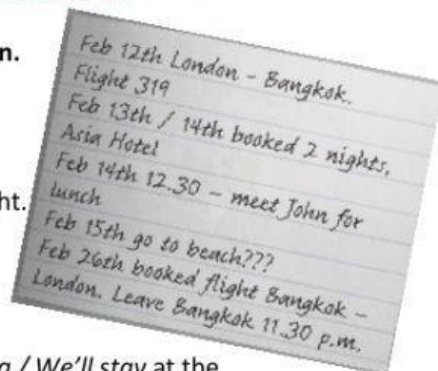 n.
Feb 12th London - Bangkok.
Flight 319
Feb 13th / 14th booked 2 nights,
Asia Hotel
Feb 14th 12.30 - meet John for
lunch
ht.
Feb 15th go to beach???
Feb 26th booked flight Bangkok -
London. Leave Bangkok 11.30 p.m.
g / We'll stay at the